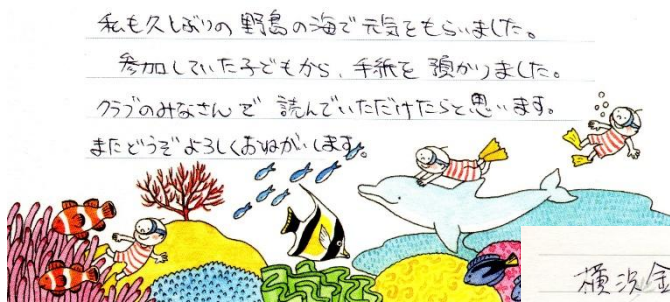 私も久しぶりの野島の海で元気をもらいました。
参加していた子どもから、手紙を預かりました。
クラブのみなさんで読んでいただけたらと思います。
またどうぞよろしくおねがいします。
横浜金